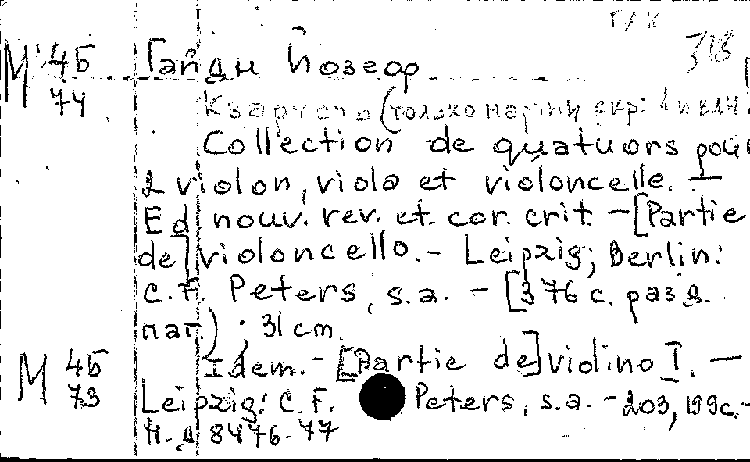 Г/К
М 45 Гайдн Йозеф 318
74 Квартеты (только партии скр: 1 и влч.
Collection de quatuors pour
2 violon, viola et violoncelle. —
Ed nouv. rev. et cor. crit. — [Partie
de] violoncello. — Leipzig; Berlin:
C. F. Peters, s.a. — [376 c. разд.
паг.) ; 31 cm.
М 45 Idem. — [Partie de] violino I. —
73 Leipzig: C. F. Peters, s.a. — 203, 199c. —
Н.д 8476-77